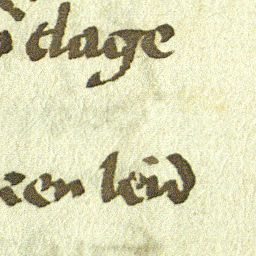 dage
en leid